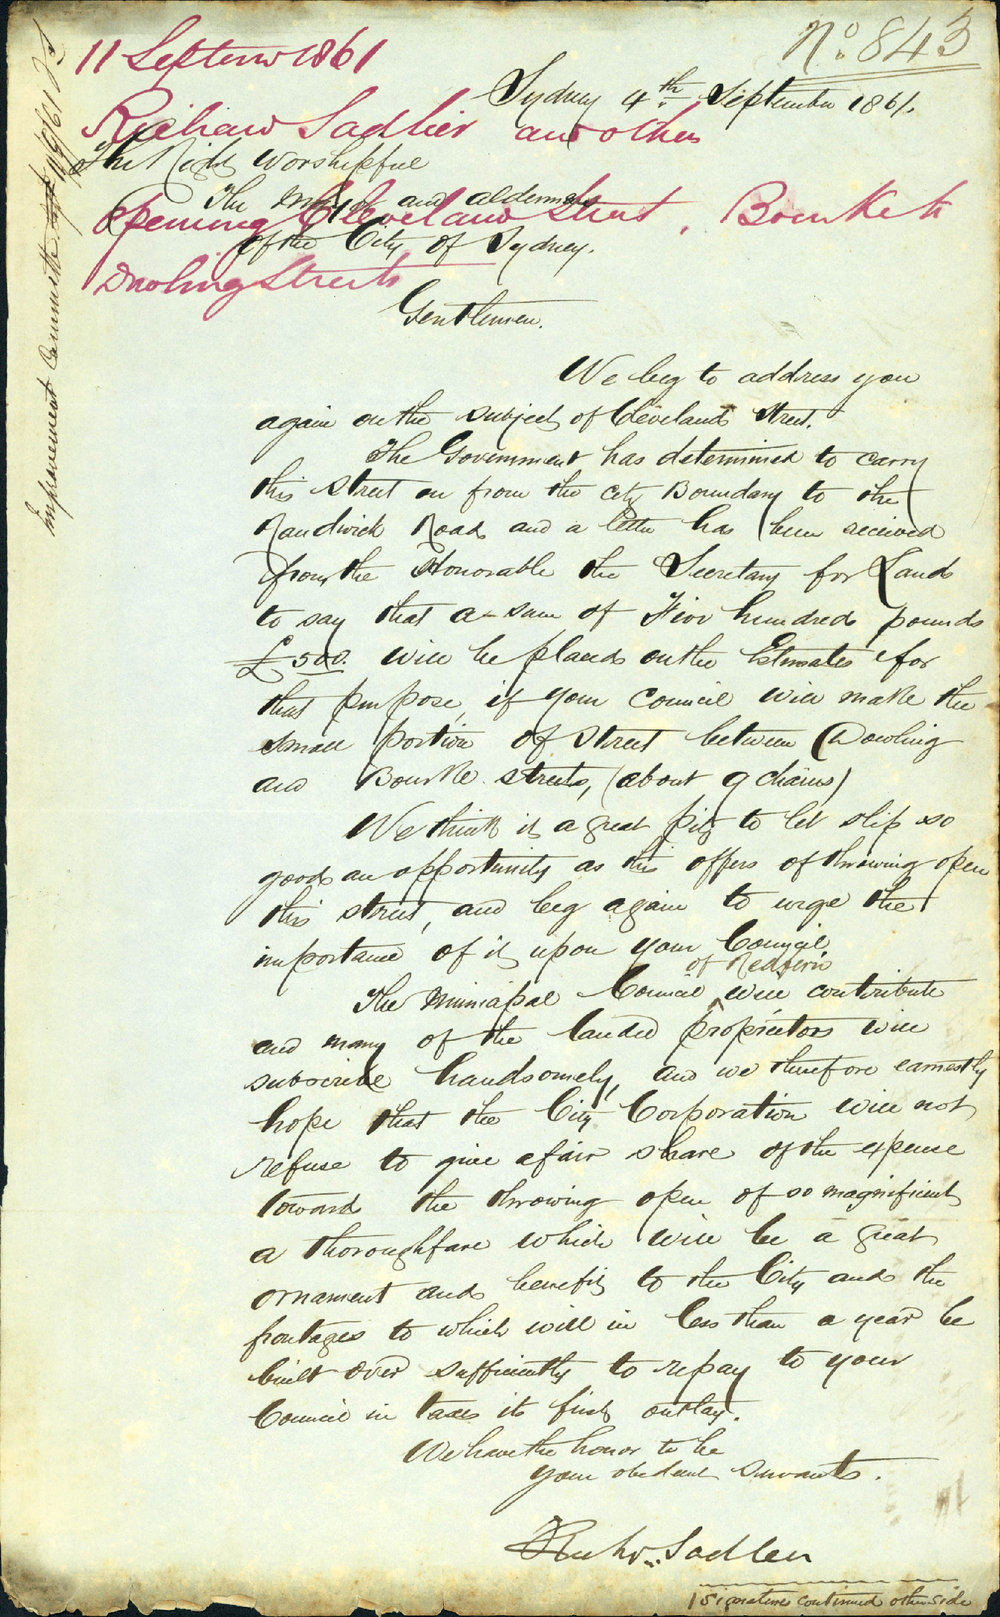 No. 843
11 September 1861
Sydney 4th September 1861.
Richard Sadlier and others
The Right Worshipful
The Mayor and aldermen
opening Cleveland Street, Bourke to
of the City of Sydney.
Dowling Streets
Improvement Committee
Gentlemen.
We beg to address you
again on the subject of Cleveland Street.
The Government has determined to carry
this street on from the city Boundary to the
Randwick Road and a letter has been received
from the Honorable the Secretary for Lands
to say that a sum of Five hundred pounds
£500. will be placed on the Estimates for
that purpose, if your Council will make the
small portion of street between Dowling
and Bourke streets, (about 9 chains)
We think it a great pity to let slip so
good an opportunity as this offers of throwing open
this street, and beg again to urge the
importance of it upon your Council
of Redfern
The Municipal Council will contribute
and many of the landed proprietors will
subscribe handsomely, and we therefore earnestly
hope that the City Corporation will not
refuse to give a fair share of the expense
toward the throwing open of so magnificent
a thoroughfare which will be a great
ornament and benefit to the City and the
frontages to which will in less than a year be
built over sufficiently to repay to your
Council in taxes its first outlay.
We have the honor to be
your obedient servants.
Richd. Sadleir
Signatures continued other side